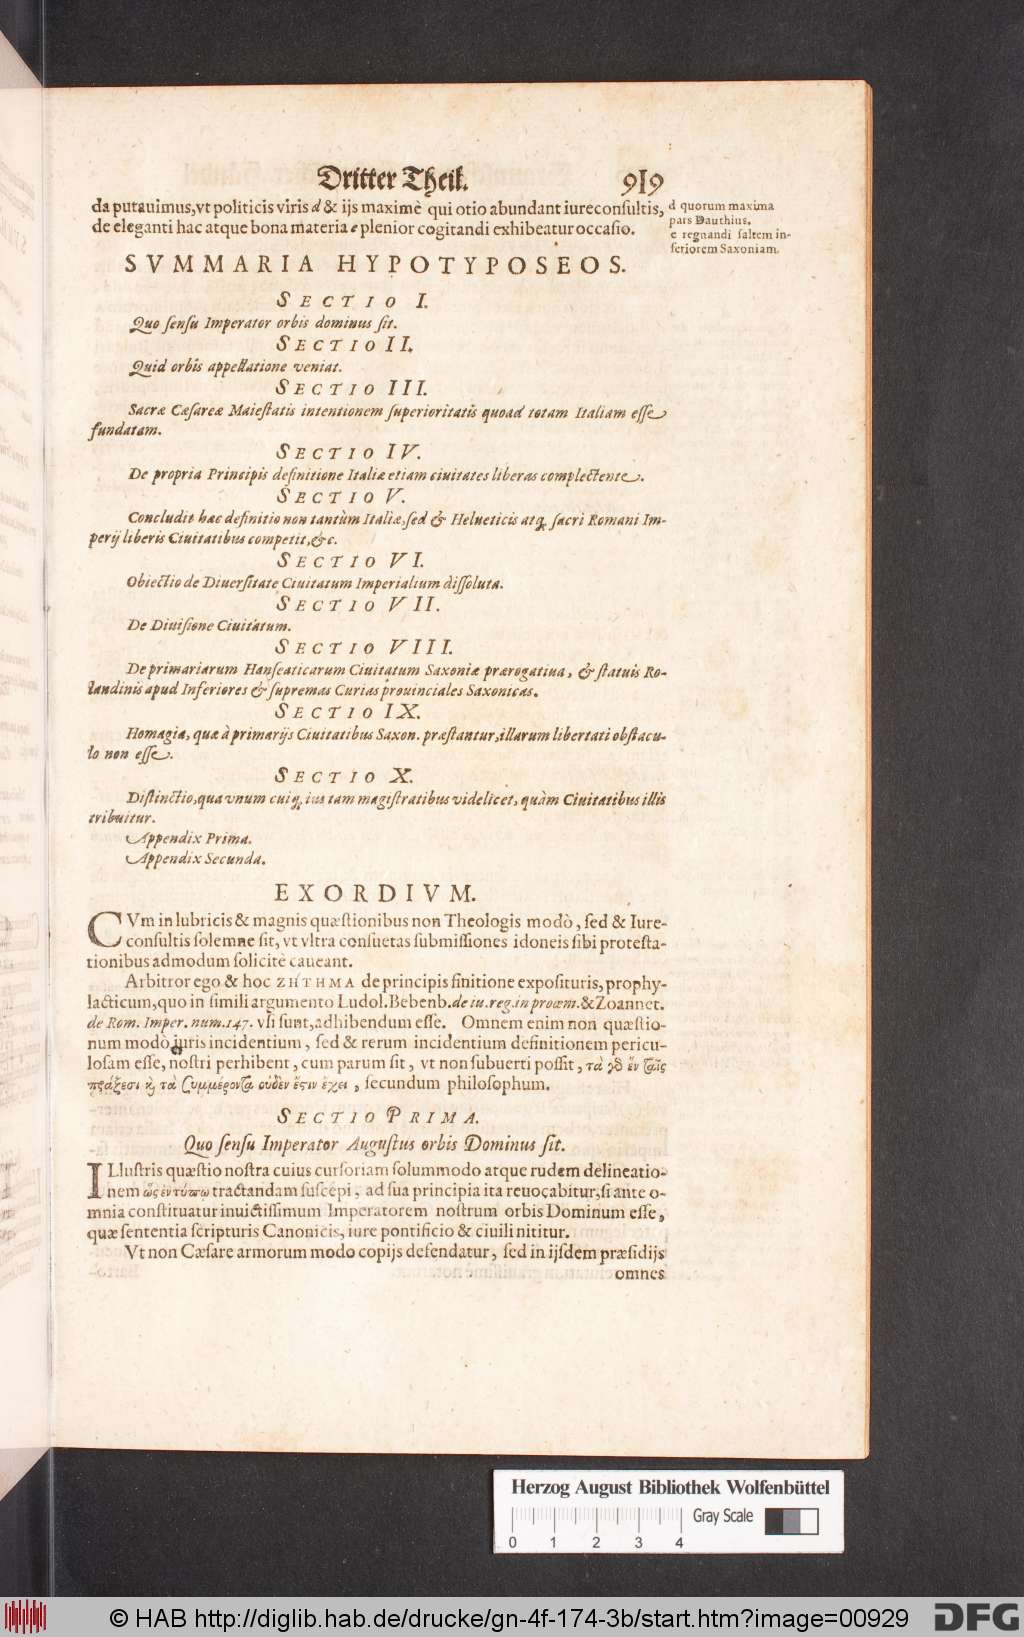 Dritter Theil. 919
da putauimus, vt politicis viris d & ijs maximè qui otio abundant iureconsultis,
de eleganti hac atque bona materia e plenior cogitandi exhibeatur occasio.
d quorum maxima
pars Dauthius.
e regnandi saltem in-
feriorem Saxoniam.
SVMMARIA HYPOTYPOSEOS.
SECTIO I.
Quo sensu Imperator orbis dominus sit.
SECTIO II.
Quid orbis appellatione veniat.
SECTIO III.
Sacræ Cæsareæ Maiestatis intentionem superioritatis quoad totam Italiam esse
fundatam.
SECTIO IV.
De propria Principis definitione Italiæ etiam ciuitates liberas complectente.
SECTIO V.
Concludit hac definitio non tantùm Italiæ, sed & Helueticis atq; sacri Romani Im-
perij liberis Ciuitatibus competit, &c.
SECTIO VI.
Obiectio de Diuersitate Ciuitatum Imperialium dissoluta.
SECTIO VII.
De Diuisione Ciuitatum.
SECTIO VIII.
De primariarum Hanseaticarum Ciuitatum Saxoniæ prærogatiua, & statuis Ro-
landinis apud Inferiores & supremas Curias prouinciales Saxonicas.
SECTIO IX.
Homagia, quæ à primarijs Ciuitatibus Saxon. præstantur, illarum libertati obstacu-
lo non esse.
SECTIO X.
Distinctio, qua vnum cuiq; ius tam magistratibus videlicet, quàm Ciuitatibus illis
tribuitur.
Appendix Prima.
Appendix Secunda.
EXORDIVM.
CVm in lubricis & magnis quæstionibus non Theologis modò, sed & Iure-
consultis solemne sit, vt vltra consuetas submissiones idoneis sibi protesta-
tionibus admodum solicitè caueant.
Arbitror ego & hoc ΖΉΤΗΜΑ de principis finitione exposituris, prophy-
lacticum, quo in simili argumento Ludol. Bebenb. de iu. reg. in proœm. & Zoannet.
de Rom. Imper. num. 147. vsi sunt, adhibendum esse. Omnem enim non quæstio-
num modò iuris incidentium, sed & rerum incidentium definitionem pericu-
losam esse, nostri perhibent, cum parum sit, vt non subuerti possit, τὰ γὸ ἐν ταῖς
πράξεσι κ̀ τὰ συμφέροντα οὐδὲν ἑστὼς ἔχει, secundum philosophum.
SECTIO PRIMA.
Quo sensu Imperator Augustus orbis Dominus sit.
ILlustris quæstio nostra cuius cursoriam solummodo atque rudem delineatio-
nem ὡς ἐν τύπῳ tractandam suscepi, ad sua principia ita reuocabitur, si ante o-
mnia constituatur inuictissimum Imperatorem nostrum orbis Dominum esse,
quæ sententia scripturis Canonicis, iure pontificio & ciuili nititur.
Vt non Cæsare armorum modo copijs defendatur, sed in ijsdem præsidijs
omnes
Herzog August Bibliothek Wolfenbüttel
0 1 2 3 4 Gray Scale
© HAB http://diglib.hab.de/drucke/gn-4f-174-3b/start.htm?image=00929 DFG